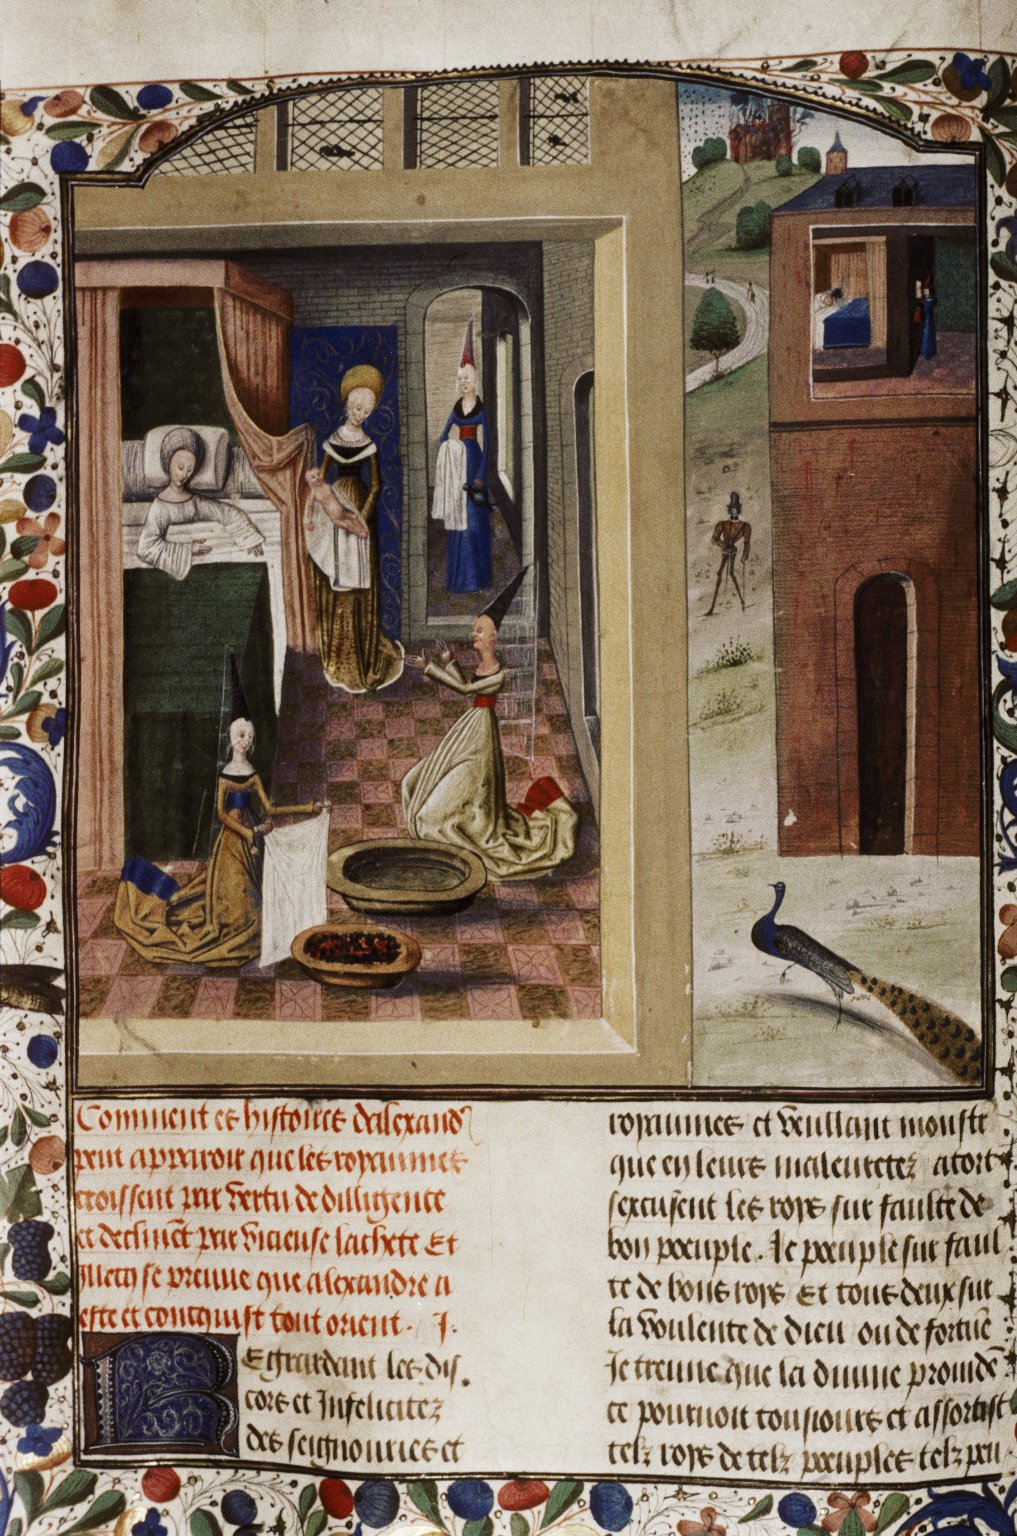 Comment es histoires dalexandr
peut apparoir que les royaumes
croissent par vertu de dilligence
et declinent par vicieuse lachete Et
illecq se preuue que alexandre a
este et conquist tout orient. I.
Regardant les dis
cors et Infelicitez
des seignouries et
royaumes et veullant monstr
que en leurs maleuretez a tort
sexcusent les roys sur faulte de
bon poeuple. le poeuple sur faul
te de bons roys Et tous deux sur
la voulente de dieu ou de fortune
Je treuue que la diuine prouiden
ce pouruoit tousiours et assortist
telz roys de telz poeuples telz peu